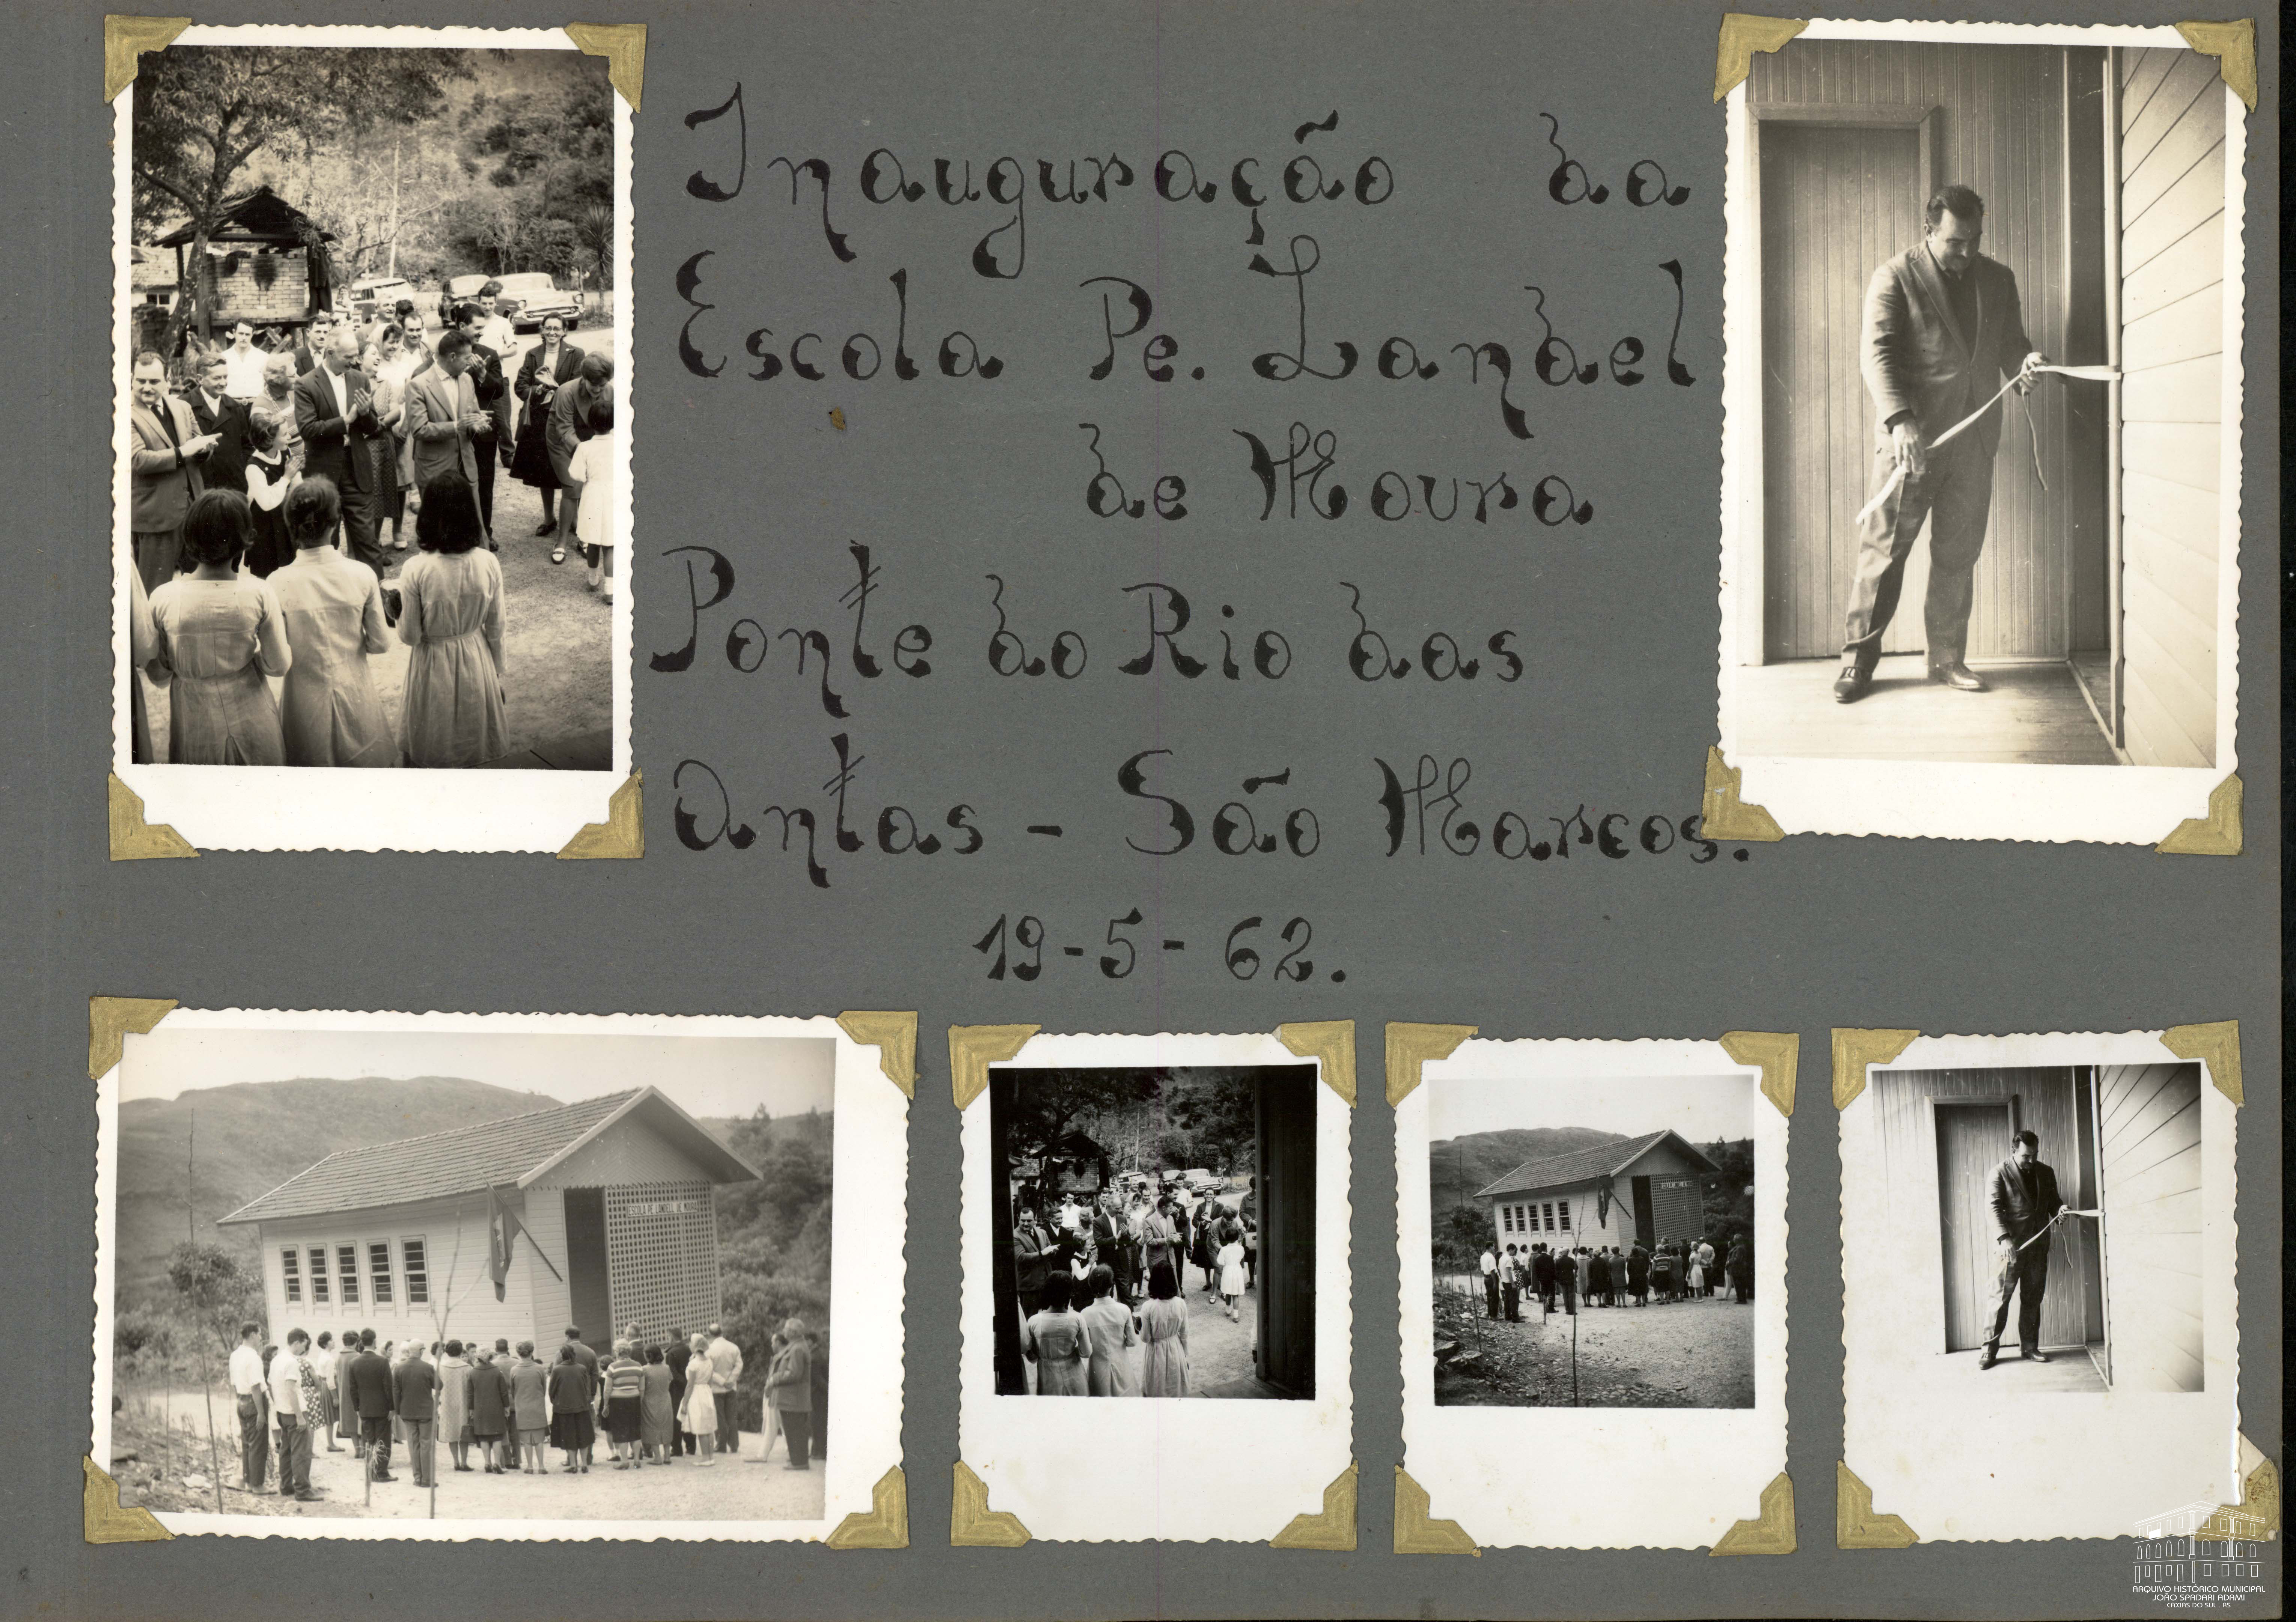 Inauguração da
Escola Pe. Landel
de Moura
Ponte do Rio das
Antas - São Marcos.
19-5-62.
ARQUIVO HISTÓRICO MUNICIPAL
JOÃO SPADARI ADAMI
CAXIAS DO SUL . RS